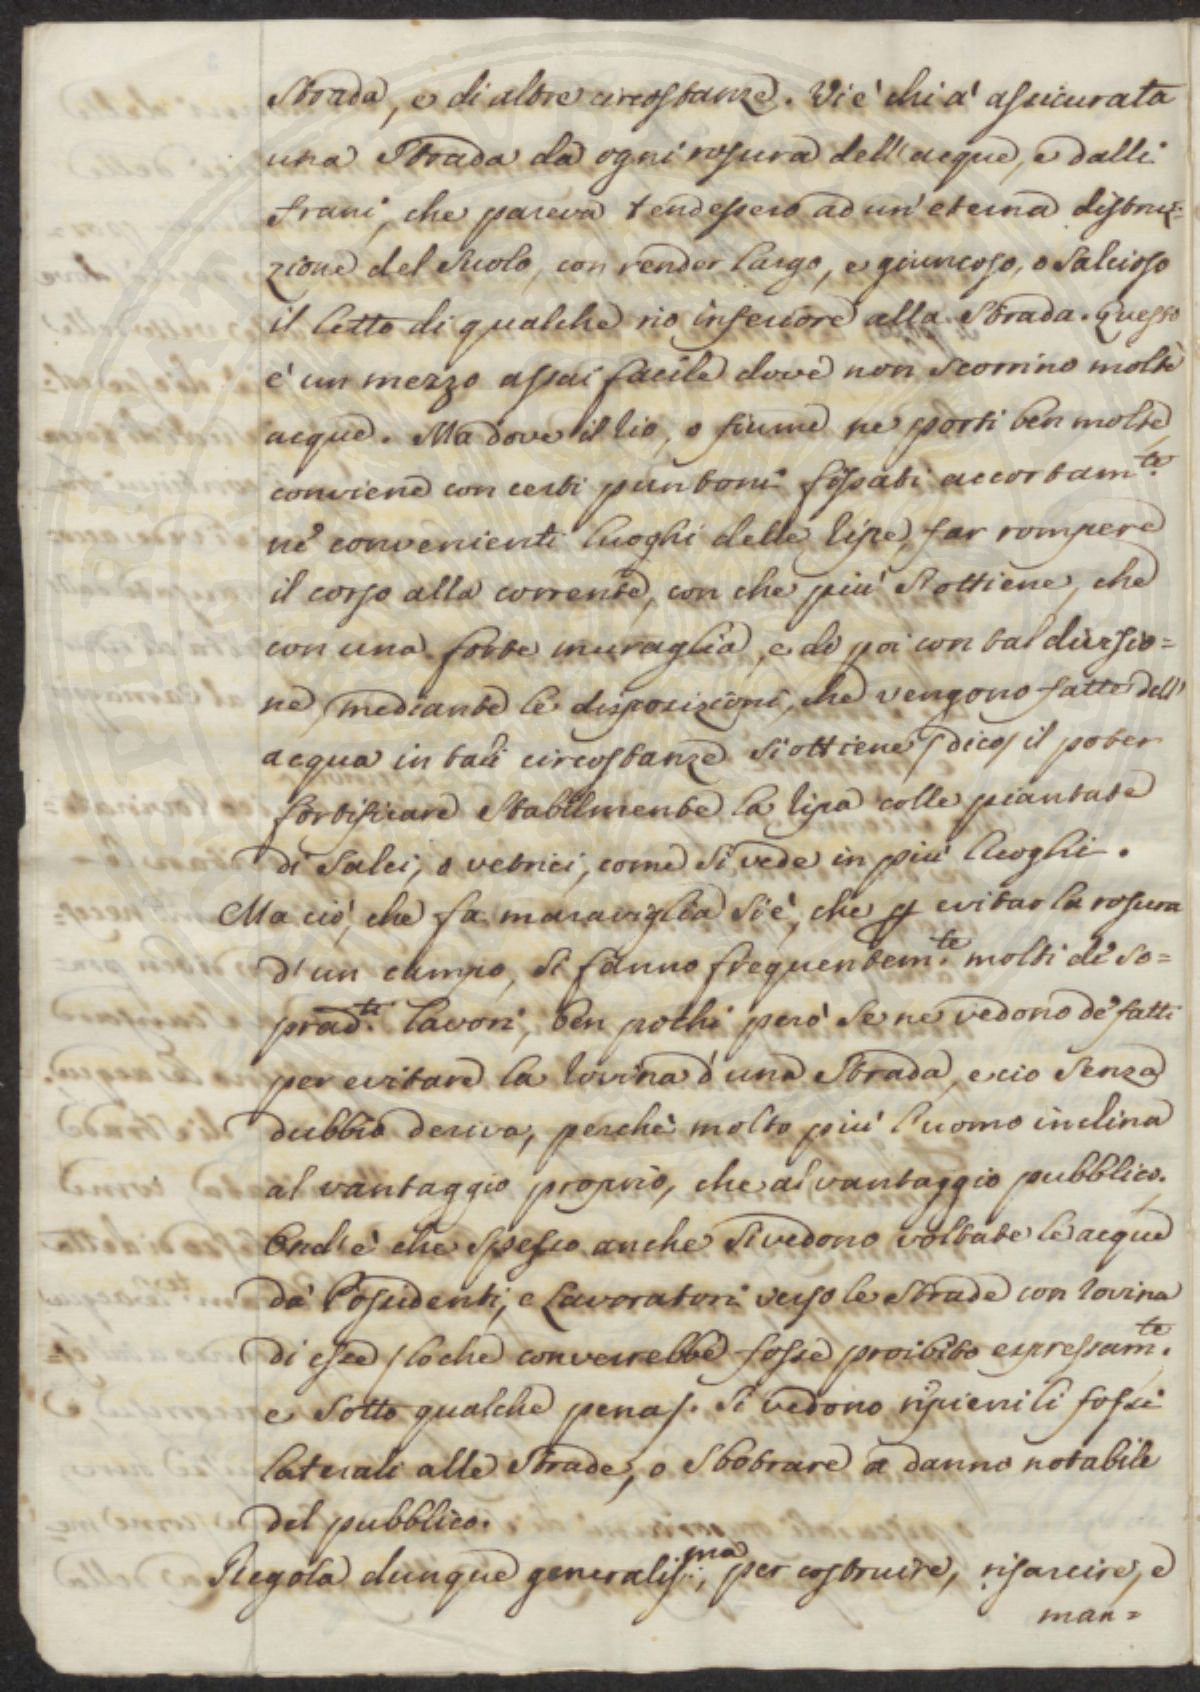 Strada, e di altre circostanze. Vi è chi à assicurata
una Strada da ogni rosura dell'acque, e dalli
frani, che pareva tendessero ad un'eterna distru=
zione del Suolo, con render largo, e giuncoso, o Salcioso
il letto di qualche rio inferiore alla Strada. Questo
è un mezzo assai facile dove non scorrino molte
acque. Ma dove il rio, o fiume ne porti ben molte,
conviene con certi puntoni fissati accortam.te
nè convenienti luoghi delle ripe, far rompere
il corso alla corrente, con che più S'ottiene, che
con una forte muraglia, e di poi con tal diversio=
ne, mediante le disposizioni, che vengono fatte dell'
acqua in tali circostanze si ottiene /dico/ il poter
fortificare Stabilmente la ripa colle piantate
di Salci, o vetrici, come Si vede in più luoghi.
Ma ciò, che fa maraviglia Si è, che p evitar la rosura
d'un campo, Si fanno frequentem.te molti di So=
prad.ti lavori, ben pochi però Se ne vedono de fatti
per evitare la rovina d'una Strada, e cio Senza
dubbio deriva, perchè molto più l'uomo inclina
al vantaggio proprio, che al vantaggio pubblico.
Ond'è che Spesso anche Si vedono voltate le acque
da' Possidenti, e Lavoratori verso le Strade con rovina
di esse /lo che converrebbe fosse proibito espressam.te
e Sotto qualche pena/. Si vedono ripieni li fossi
laterali alle Strade, o Sbobrare a danno notabile
del pubblico.
Regola dunque generalis.ma, per costruire, risarcire, e
man=